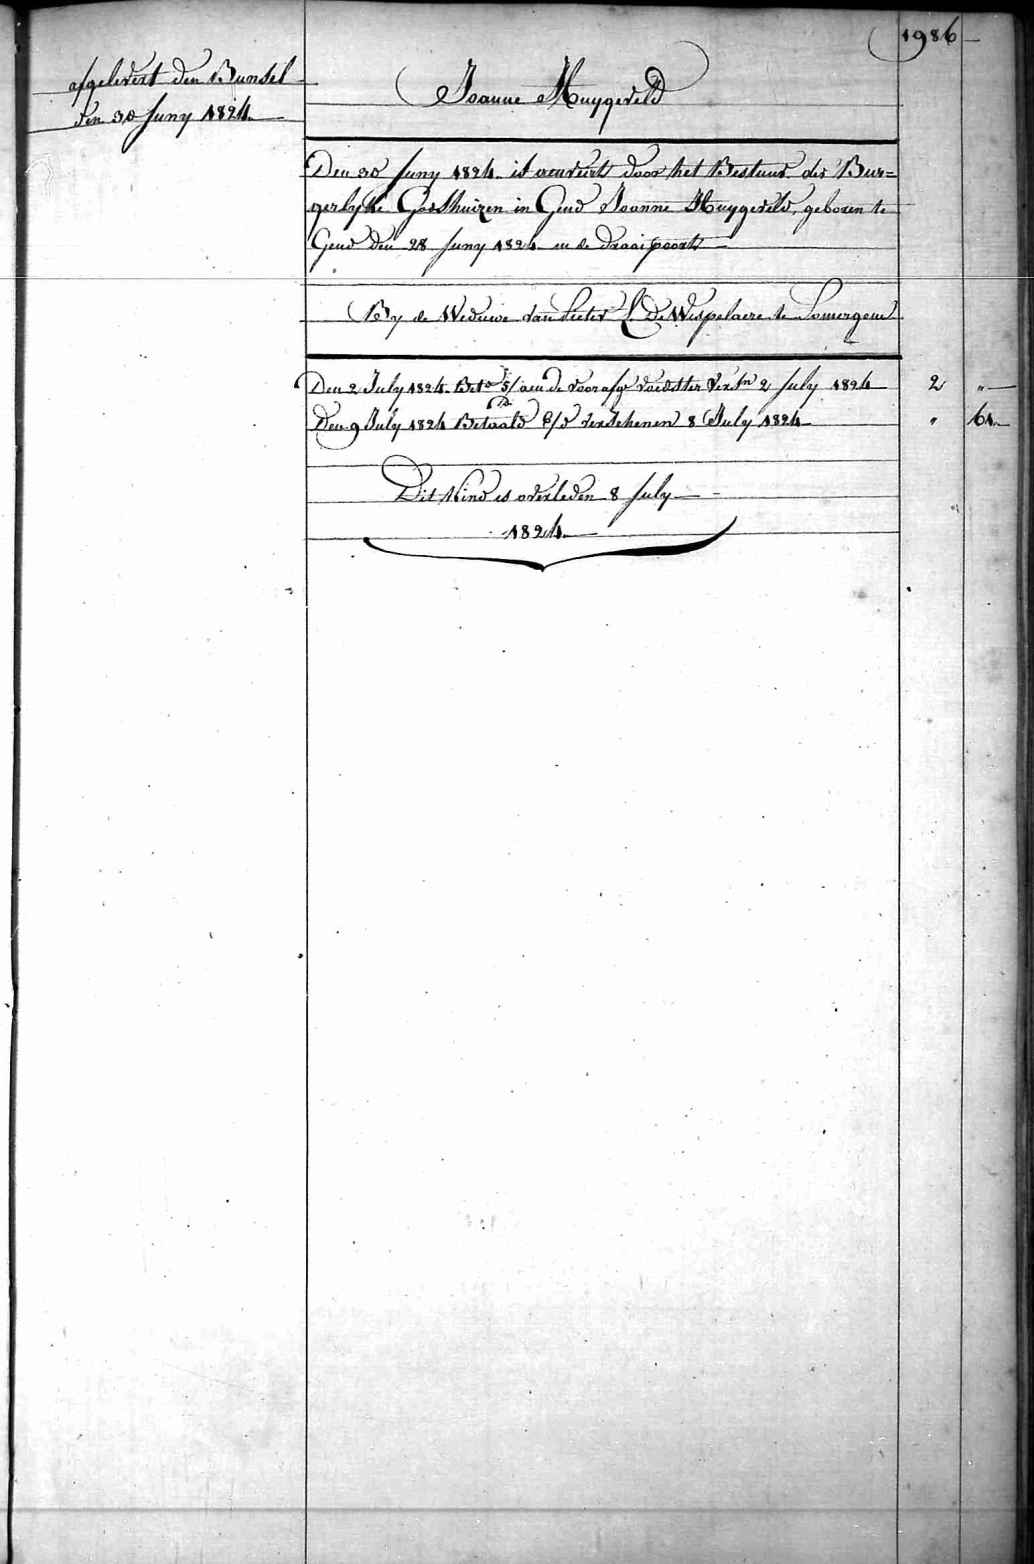 1986
afgelevert den Bundel
den 30 Juny 1824
Joanne Huygeveld
Den 30 Juny 1824 is aenveert door het Bestuur der Bur=
gerlyke Godshuizen in Gend Joanne Huygeveld, geboren te
Gend den 28 Juny 1824 in de draaipoort
By de Weduwe van Pieter L. De Wispelaere te Somergem
Den 2 July 1824 Bet. aen de voorafg. voedster 2 July 1824 2 "
Den 9 July 1824 Betaald verschenen 8 July 1824 " 64
Dit Kind is overleden 8 July
1824